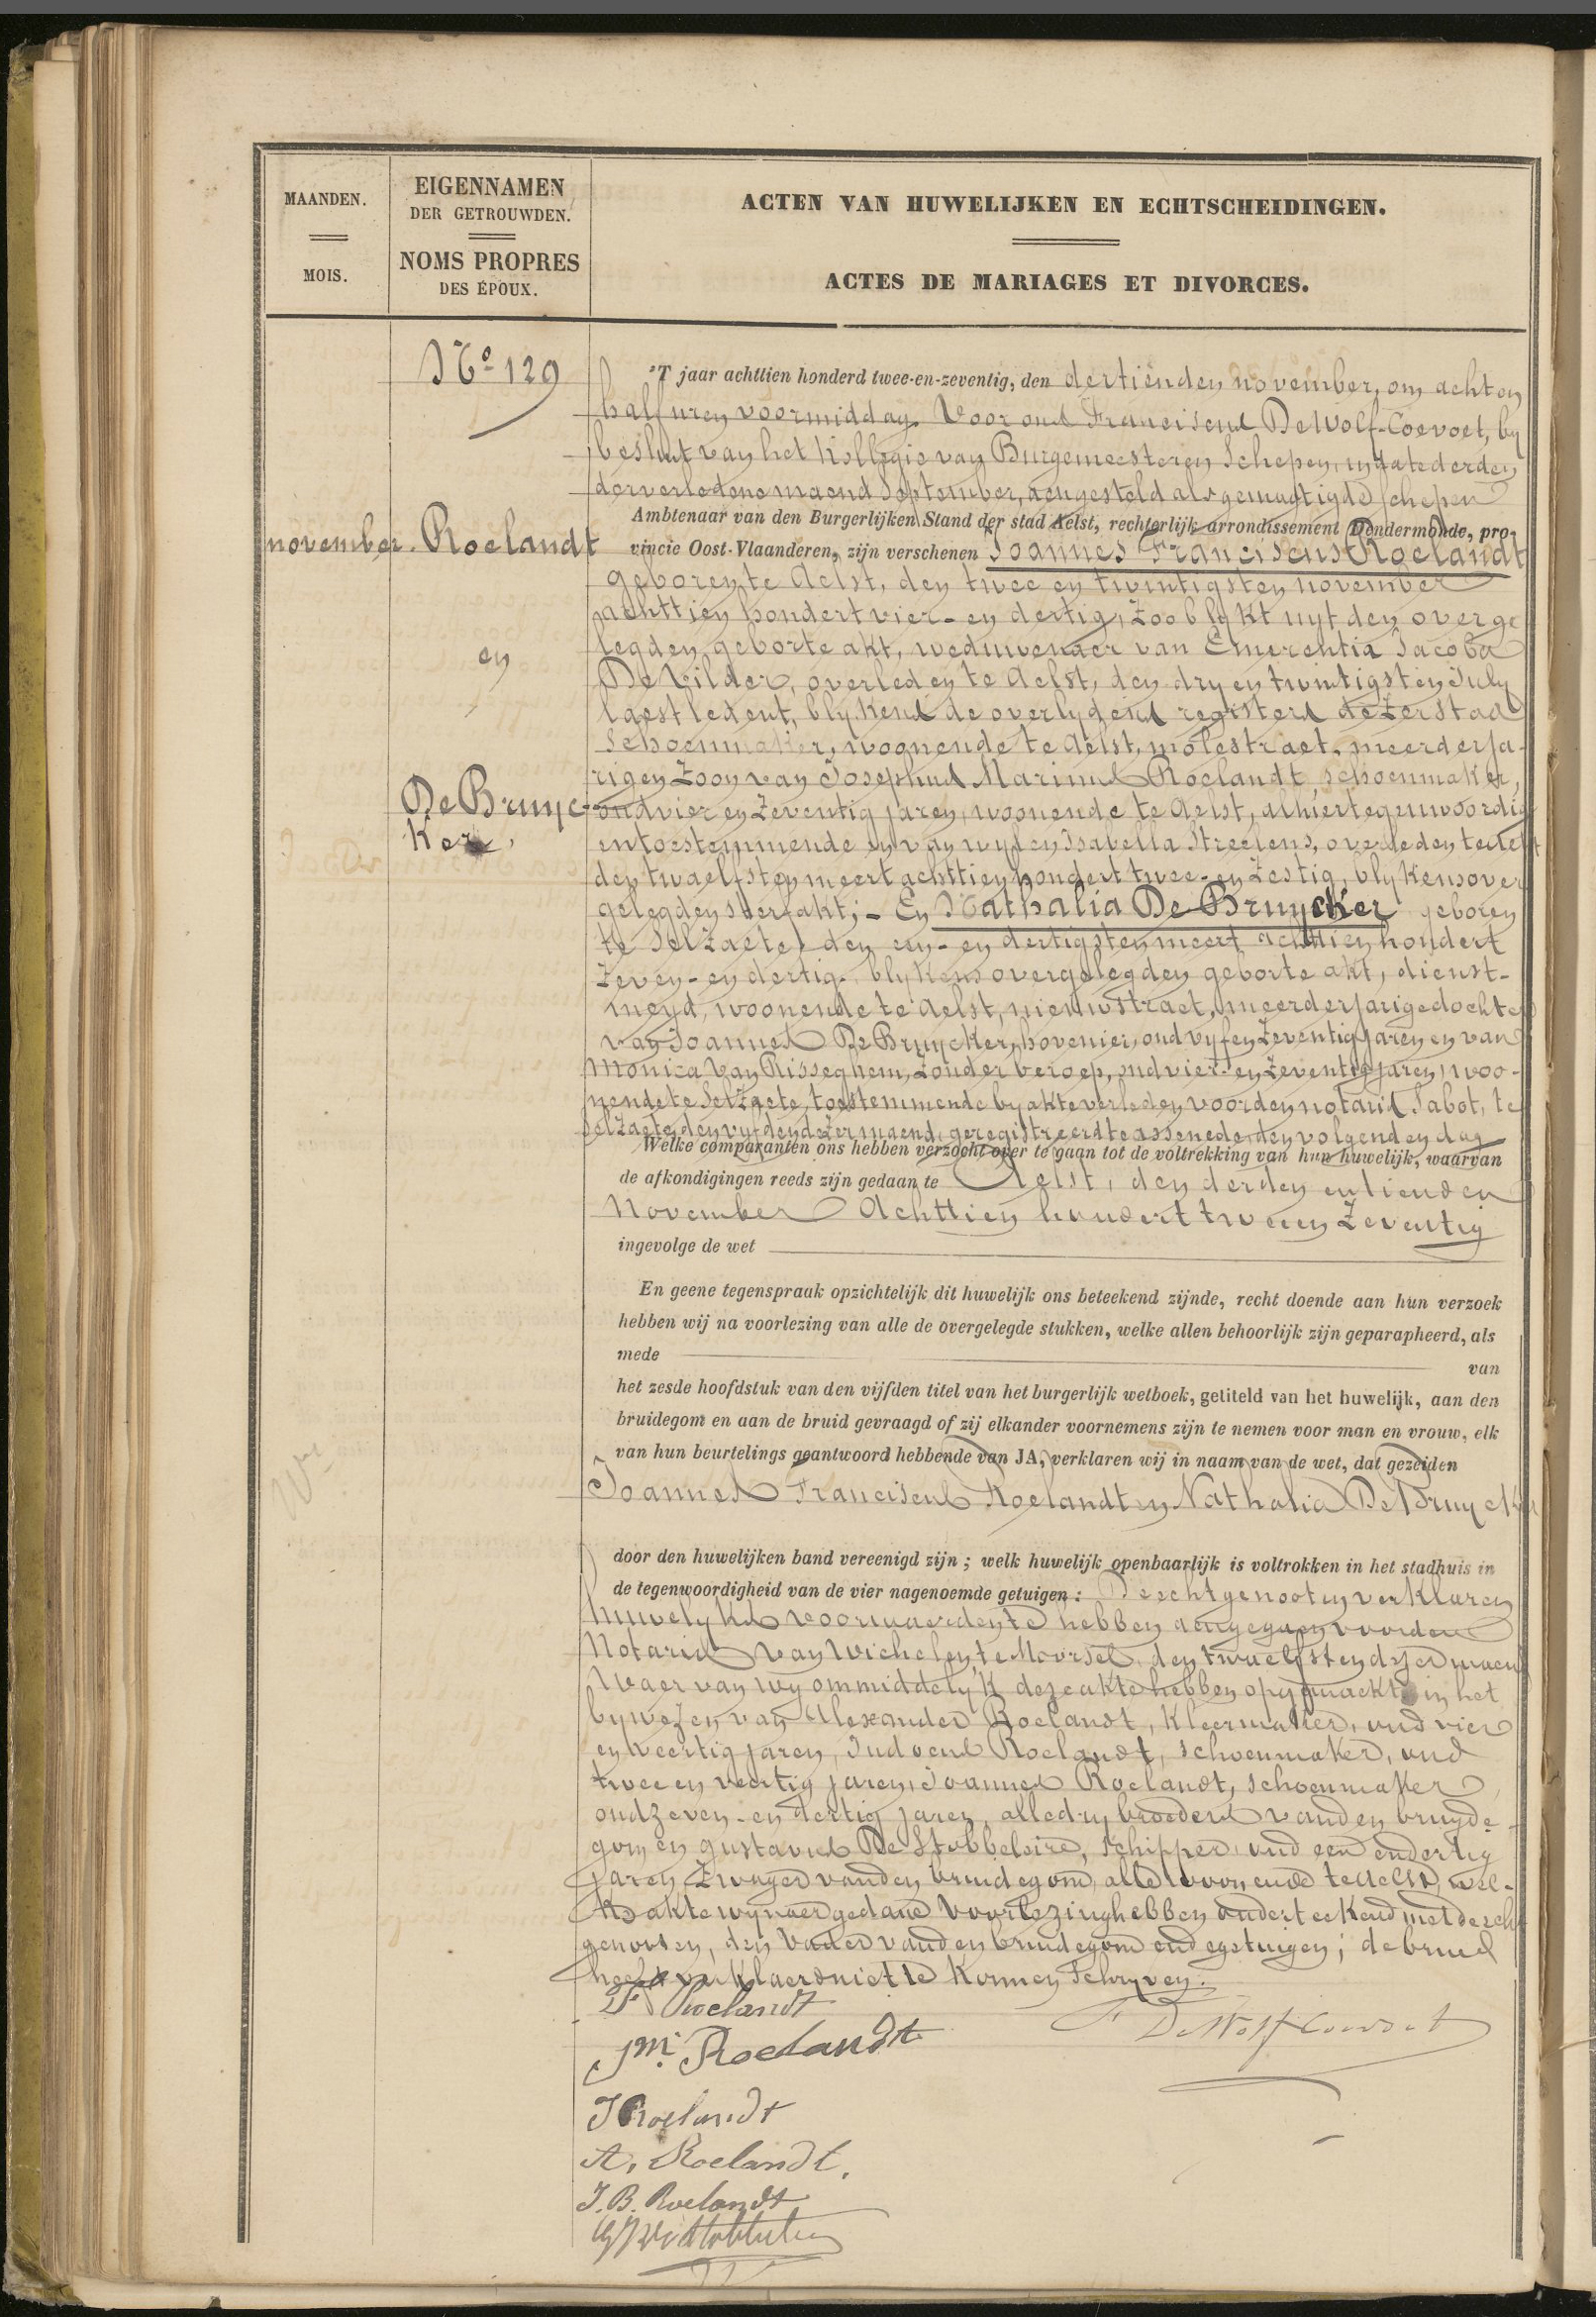 MAANDEN.
MOIS.
EIGENNAMEN
DER GETROUWDEN.
NOMS PROPRES
DES ÉPOUX.
ACTEN VAN HUWELIJKEN EN ECHTSCHEIDINGEN.
ACTES DE MARIAGES ET DIVORCES.
No 129
november. Roelandt
en
De Bruyc-
Ker.
'T jaar achttien honderd twee-en-zeventig, den dertienden november, om acht en
half uren voormiddag. Voor ons Franciscus De Wolf-Coevoet, by
besluit van het Kollegie van Burgemeester en Schepen, in date derden
der verledene maend September, aengesteld als gemagtigde schepen
Ambtenaar van den Burgerlijken Stand der stad Aelst, rechterlijk arrondissement Dendermonde, pro-
vincie Oost-Vlaanderen, zijn verschenen Joannes Franciscus Roelandt
geboren te Aelst, den twee en twintigsten november
achttien hondert vier-en dertig, zoo blykt uyt den overge
legden geborte akt, weduwenaer van Emerentia Jacoba
De Vilder, overleden te Aelst, den dry en twintigsten July
laestledent, blykens de overlydens registers dezer stad
schoenmaker, woonende te Aelst, molestraet, meerderja-
rigen zoon van Josephus Marinus Roelandt, schoenmaker,
oud vier en zeventig jaren, woonende te Aelst, alhier tegenwoordig
en toestemmende en van wylen Isabella Streelens, overleden te Aelst
den twaelfsten meert achttien hondert twee-en zestig, blykens over
gelegden sterfakt; - En Nathalia De Bruycker geboren
te Selzaete, den een-en dertigsten meert achttien hondert
zeven-en dertig, blykens overgelegden geborte akt, dienst-
meyd, woonende te Aelst, nieuwstraet, meerderjarige dochter
van Joannes De Bruycker, hovenier, oud vyf en zeventig jaren en van
Monica Van Risseghem, zonder beroep, oud vier-en zeventig jaren, woo-
nende te Selzaete, toestemmende by akte verleden voor den notaris Sabot, te
Selzaete, den vyfden dezer maend, geregistreerd te assenede, den volgenden dag
Welke comparanten ons hebben verzocht over te gaan tot de voltrekking van hun huwelijk, waarvan
de afkondigingen reeds zijn gedaan te Aelst, den derden en tienden
November Achttien hundert twee en Zeventig
ingevolge de wet
En geene tegenspraak opzichtelijk dit huwelijk ons beteekend zijnde, recht doende aan hun verzoek
hebben wij na voorlezing van alle de overgelegde stukken, welke allen behoorlijk zijn geparapheerd, als
mede van
het zesde hoofdstuk van den vijfden titel van het burgerlijk wetboek, getiteld van het huwelijk, aan den
bruidegom en aan de bruid gevraagd of zij elkander voornemens zijn te nemen voor man en vrouw, elk
van hun beurtelings geantwoord hebbende van JA, verklaren wij in naam van de wet, dat gezeiden
Joannes Franciscus Roelandt en Nathalia De Bruycker
door den huwelijken band vereenigd zijn ; welk huwelijk openbaarlijk is voltrokken in het stadhuis in
de tegenwoordigheid van de vier nagenoemde getuigen : De echtgenooten verklaren
huwelyks voorwaerden te hebben aengegaen voor den
Notaris Van Wichelen, te Moorsel, den twaelfsten dezer maend
Waer van wy ommiddelyk deze akte hebben opgemaekt in het
bywezen van Alexander Roelandt, Kleermaker, oud vier
en veertig jaren, Judocus Roelandt, schoenmaker, oud
twee en veertig jaren, Joannes Roelandt, schoenmaker
oud zeven-en dertig jaren, alle dry broeders van den bruyde-
gom en gustavus De Stobbeleire, Schipper oud een en dertig
jaren, Zwager van den bruidegom, alle woonende te Aelst, wel-
ke akte wy naer gedane voorlezing hebben onderteekend met de echt
genooten, den Vader van den bruidegom en de getuigen; de bruid
heeft verklaerd niet te Konnen Schryven.
F Roelandt
J M. Roelandt
J Roelandt
A. Roelandt.
J. B. Roelandt
F DeWolf Coevoet